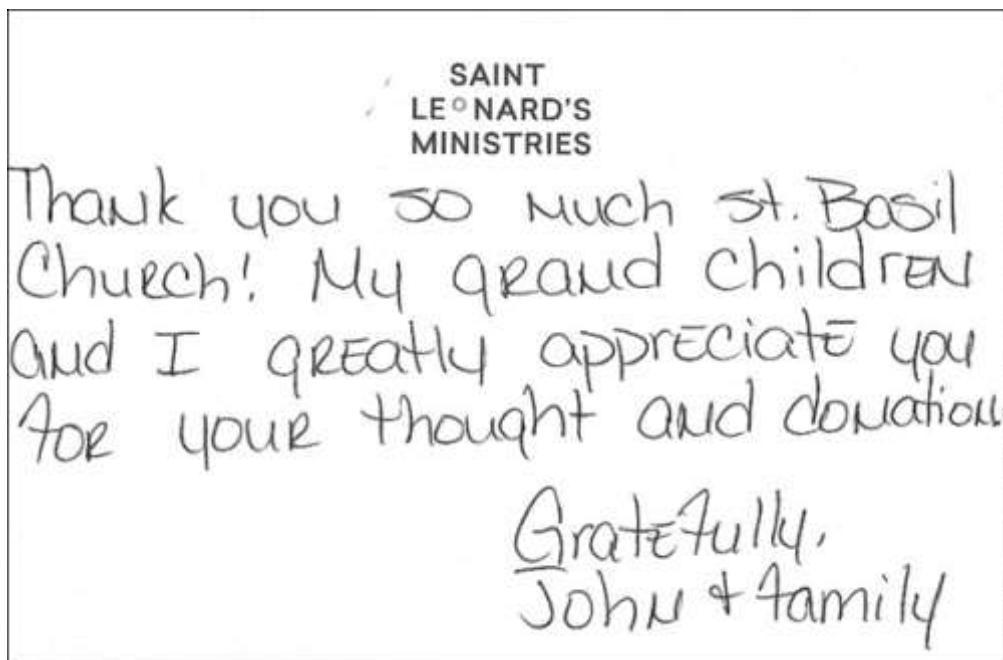 SAINT
LEONARD'S
MINISTRIES
Thank you so much St. Basil
Church! My grand children
and I greatly appreciate you
for your thought and donation
Gratefully,
John & family